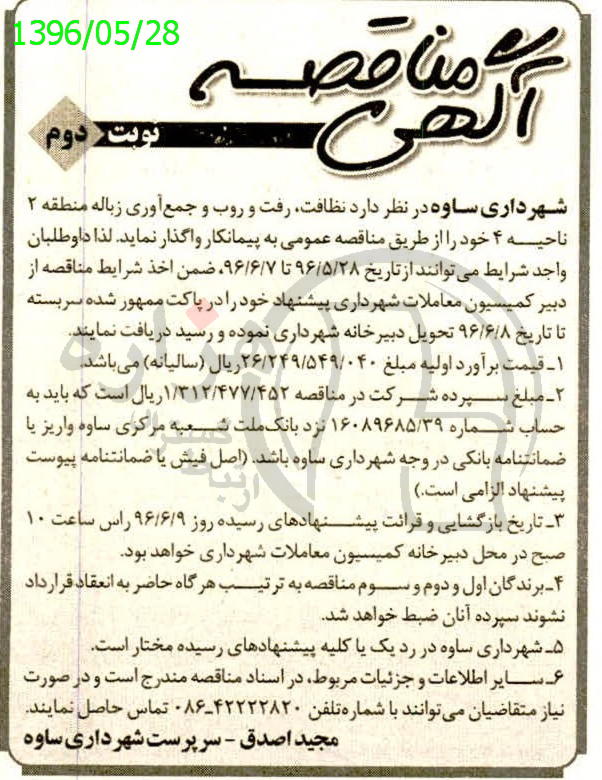 1396/05/28
آگهی مناقصه
نوبت دوم
شهرداری ساوه در نظر دارد نظافت، رفت و روب و جمع‌آوری زباله منطقه ۲
ناحیه ۴ خود را از طریق مناقصه عمومی به پیمانکار واگذار نماید. لذا داوطلبان
واجد شرایط می‌توانند از تاریخ ۹۶/۵/۲۸ تا ۹۶/۶/۷، ضمن اخذ شرایط مناقصه از
دبیر کمیسیون معاملات شهرداری پیشنهاد خود را در پاکت ممهور شده سربسته
تا تاریخ ۹۶/۶/۸ تحویل دبیرخانه شهرداری نموده و رسید دریافت نمایند.
۱ـ قیمت برآورد اولیه مبلغ ۲۶/۲۴۹/۵۴۹/۰۴۰ ریال (سالیانه) می‌باشد.
۲ـ مبلغ سپرده شرکت در مناقصه ۱/۳۱۲/۴۷۷/۴۵۲ ریال است که باید به
حساب شماره ۱۶۰۸۹۶۸۵/۳۹ نزد بانک ملت شعبه مرکزی ساوه واریز یا
ضمانتنامه بانکی در وجه شهرداری ساوه باشد. (اصل فیش یا ضمانتنامه پیوست
پیشنهاد الزامی است.)
۳ـ تاریخ بازگشایی و قرائت پیشنهادهای رسیده روز ۹۶/۶/۹ راس ساعت ۱۰
صبح در محل دبیرخانه کمیسیون معاملات شهرداری خواهد بود.
۴ـ برندگان اول و دوم و سوم مناقصه به ترتیب هرگاه حاضر به انعقاد قرارداد
نشوند سپرده آنان ضبط خواهد شد.
۵ـ شهرداری ساوه در رد یک یا کلیه پیشنهادهای رسیده مختار است.
۶ـ سایر اطلاعات و جزئیات مربوط، در اسناد مناقصه مندرج است و در صورت
نیاز متقاضیان می‌توانند با شماره تلفن ۴۲۲۲۲۸۲۰ـ۰۸۶ تماس حاصل نمایند.
مجید اصدق - سرپرست شهرداری ساوه